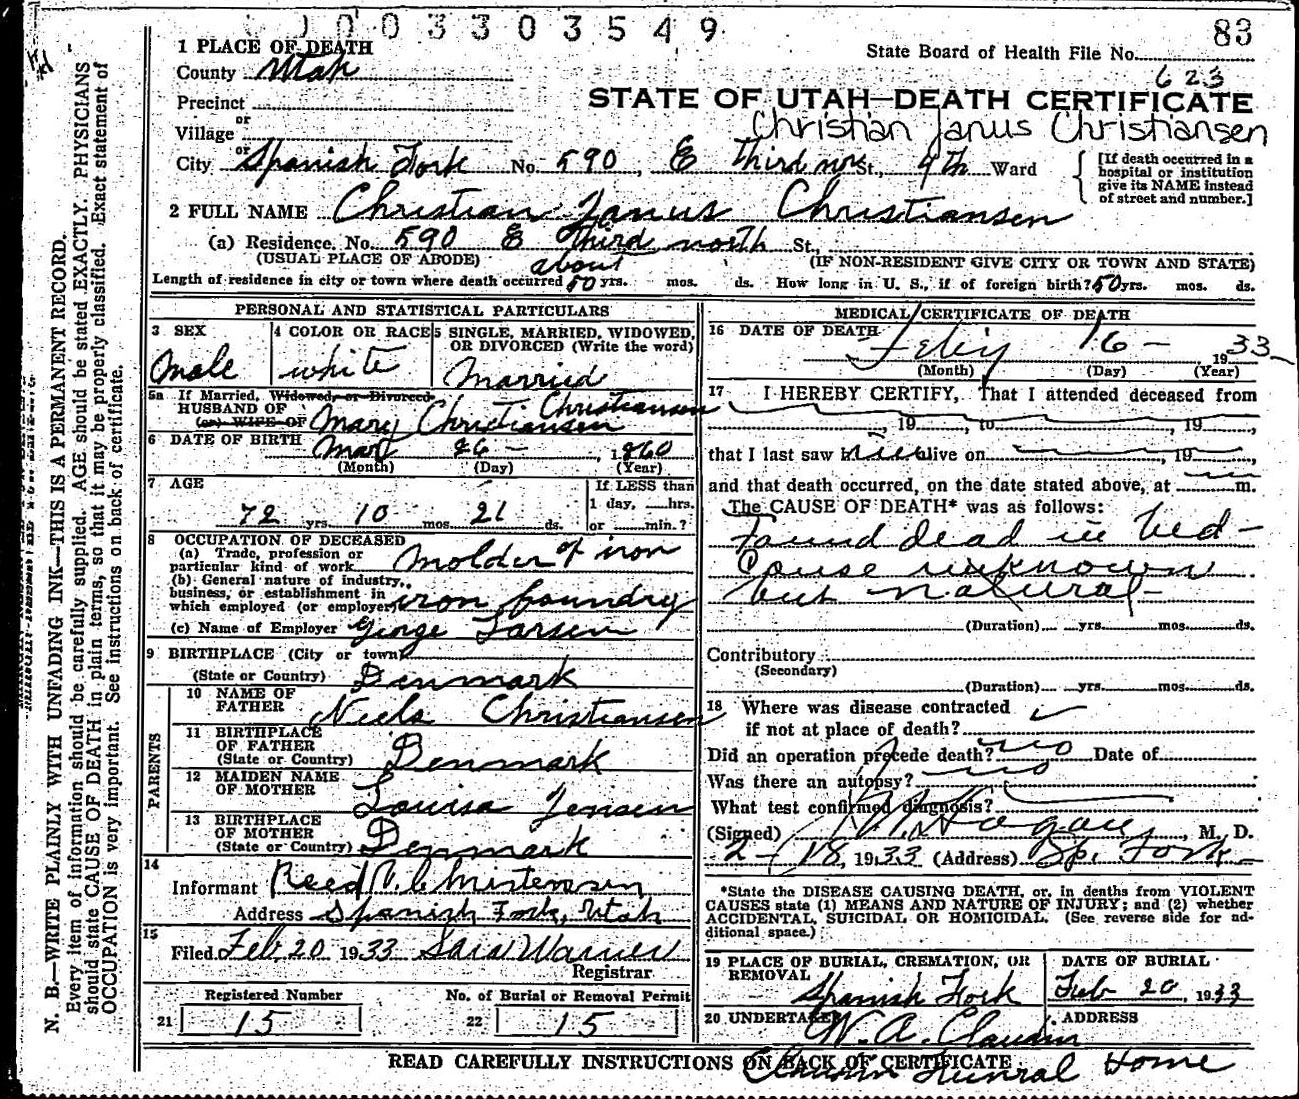 0003303549
83
1 PLACE OF DEATH
State Board of Health File No.
County Utah
623
Precinct
STATE OF UTAH—DEATH CERTIFICATE
or
Village
Christian Janus Christiansen
or
City Spanish Fork No. 590, E Third north St., 4th Ward
[If death occurred in a hospital or institution give its NAME instead of street and number.]
2 FULL NAME Christian Janus Christiansen
(a) Residence. No. 590 E Third north St.,
(USUAL PLACE OF ABODE) (IF NON-RESIDENT GIVE CITY OR TOWN AND STATE)
about
Length of residence in city or town where death occurred 50 yrs. mos. ds. How long in U. S., if of foreign birth? 50 yrs. mos. ds.
PERSONAL AND STATISTICAL PARTICULARS
3 SEX
Male
4 COLOR OR RACE
white
5 SINGLE, MARRIED, WIDOWED, OR DIVORCED (Write the word)
Married
5a If Married, Widowed, or Divorced
HUSBAND OF
(or) WIFE OF Mary Christiansen Christiansen
6 DATE OF BIRTH Mar 26 — , 1860
(Month) (Day) (Year)
7 AGE
If LESS than
1 day, hrs.
72 yrs. 10 mos. 21 ds. or min.?
8 OCCUPATION OF DECEASED
(a) Trade, profession or
particular kind of work molder of iron
(b) General nature of industry,
business, or establishment in
which employed (or employer) iron foundry
(c) Name of Employer George Larsen
9 BIRTHPLACE (City or town)
(State or Country) Denmark
PARENTS
10 NAME OF
FATHER Niels Christiansen
11 BIRTHPLACE
OF FATHER
(State or Country) Denmark
12 MAIDEN NAME
OF MOTHER Louisa Jensen
13 BIRTHPLACE
OF MOTHER
(State or Country) Denmark
14
Informant Reed Christensen
Address Spanish Fork, Utah
15
Filed Feb 20 1933 Sara Warner
Registrar
Registered Number
21 15
No. of Burial or Removal Permit
22 15
MEDICAL CERTIFICATE OF DEATH
16 DATE OF DEATH
Feby 16 — 1933
(Month) (Day) (Year)
17 I HEREBY CERTIFY, That I attended deceased from
, 19 , to , 19 ,
that I last saw h alive on , 19 ,
and that death occurred, on the date stated above, at m.
The CAUSE OF DEATH* was as follows:
Found dead in bed —
Cause unknown
but natural —
(Duration) yrs. mos. ds.
Contributory
(Secondary)
(Duration) yrs. mos. ds.
18 Where was disease contracted
if not at place of death?
Did an operation precede death? no Date of
Was there an autopsy? no
What test confirmed diagnosis?
(Signed) Hagan, M. D.
2-18, 1933 (Address) Sp. Fork
*State the DISEASE CAUSING DEATH, or, in deaths from VIOLENT
CAUSES state (1) MEANS AND NATURE OF INJURY; and (2) whether
ACCIDENTAL, SUICIDAL OR HOMICIDAL. (See reverse side for ad-
ditional space.)
19 PLACE OF BURIAL, CREMATION, OR
REMOVAL
Spanish Fork
DATE OF BURIAL
Feb 20, 1933
20 UNDERTAKER
W. A. Claudin
ADDRESS
READ CAREFULLY INSTRUCTIONS ON BACK OF CERTIFICATE.
Claudin Funral Home
N. B.—WRITE PLAINLY WITH UNFADING INK—THIS IS A PERMANENT RECORD.
Every item of information should be carefully supplied. AGE should be stated EXACTLY. PHYSICIANS
should state CAUSE OF DEATH in plain terms, so that it may be properly classified. Exact statement of
OCCUPATION is very important. See instructions on back of certificate.